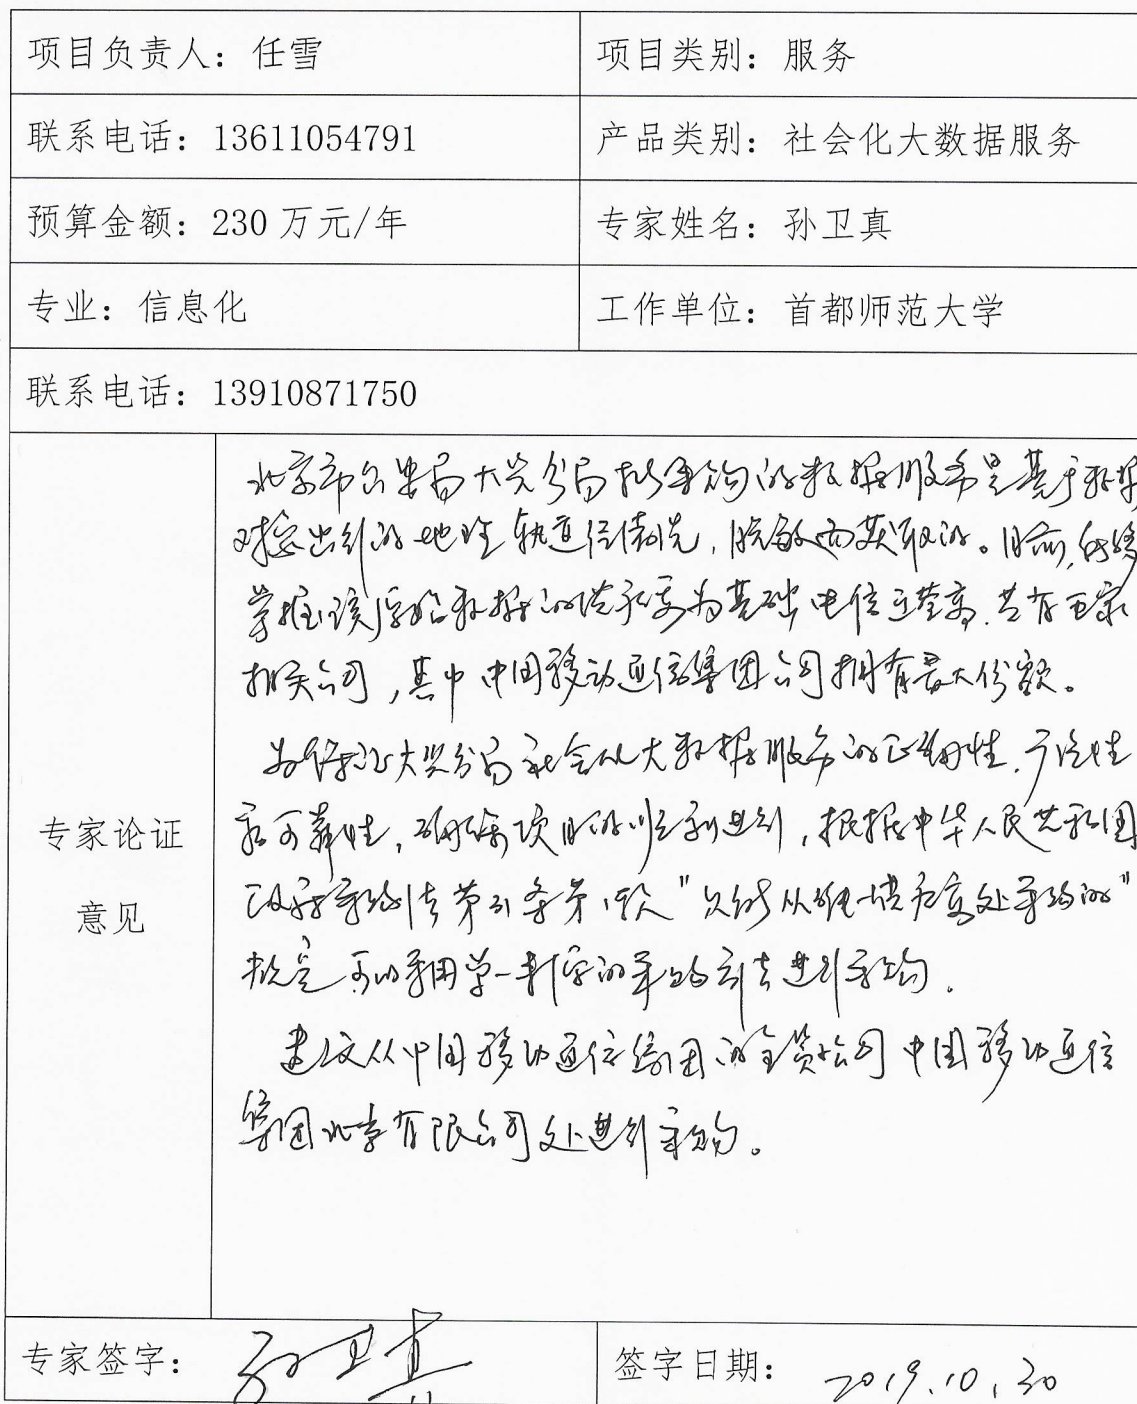 项目负责人：任雪
项目类别：服务
联系电话：13611054791
产品类别：社会化大数据服务
预算金额：230万元/年
专家姓名：孙卫真
专业：信息化
工作单位：首都师范大学
联系电话：13910871750
专家论证
意见
北京市公安局大兴分局拟采购的数据服务是基于数据
对接出的地理轨迹经清洗，脱敏而获取的。目前，能够
掌握该原始数据的供应商为基础电信运营商，共有三家
相关公司，其中中国移动通信集团公司拥有最大份额。
为保证大兴分局社会化大数据服务的正确性，广泛性
和可靠性，确保项目的顺利进行，根据中华人民共和国
政府采购法第31条第1款"只能从唯一供应商处采购的"
规定 可以采用单一来源的采购方式进行采购。
建议从中国移动通信集团的全资公司中国移动通信
集团北京有限公司处进行采购。
专家签字：孙卫真
签字日期：2019.10.30